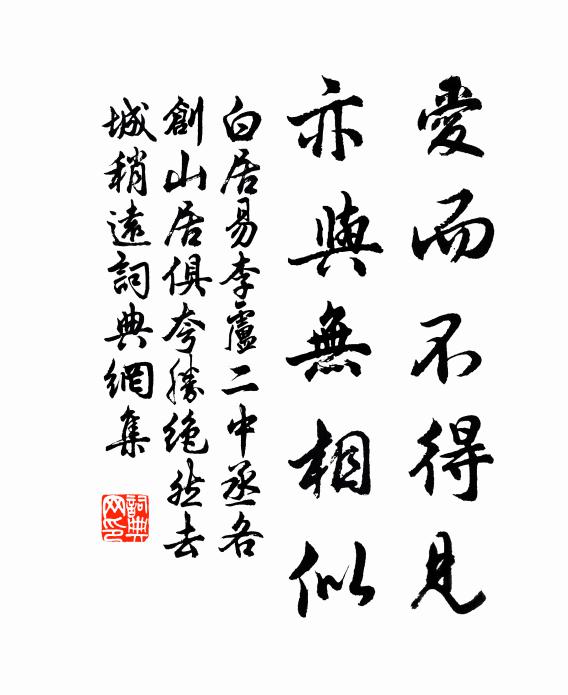 愛而不得見
亦與無相似
白居易李盧二中丞各
創山居俱夸勝絕然去
城稍遠詞典網集
詞典
网印